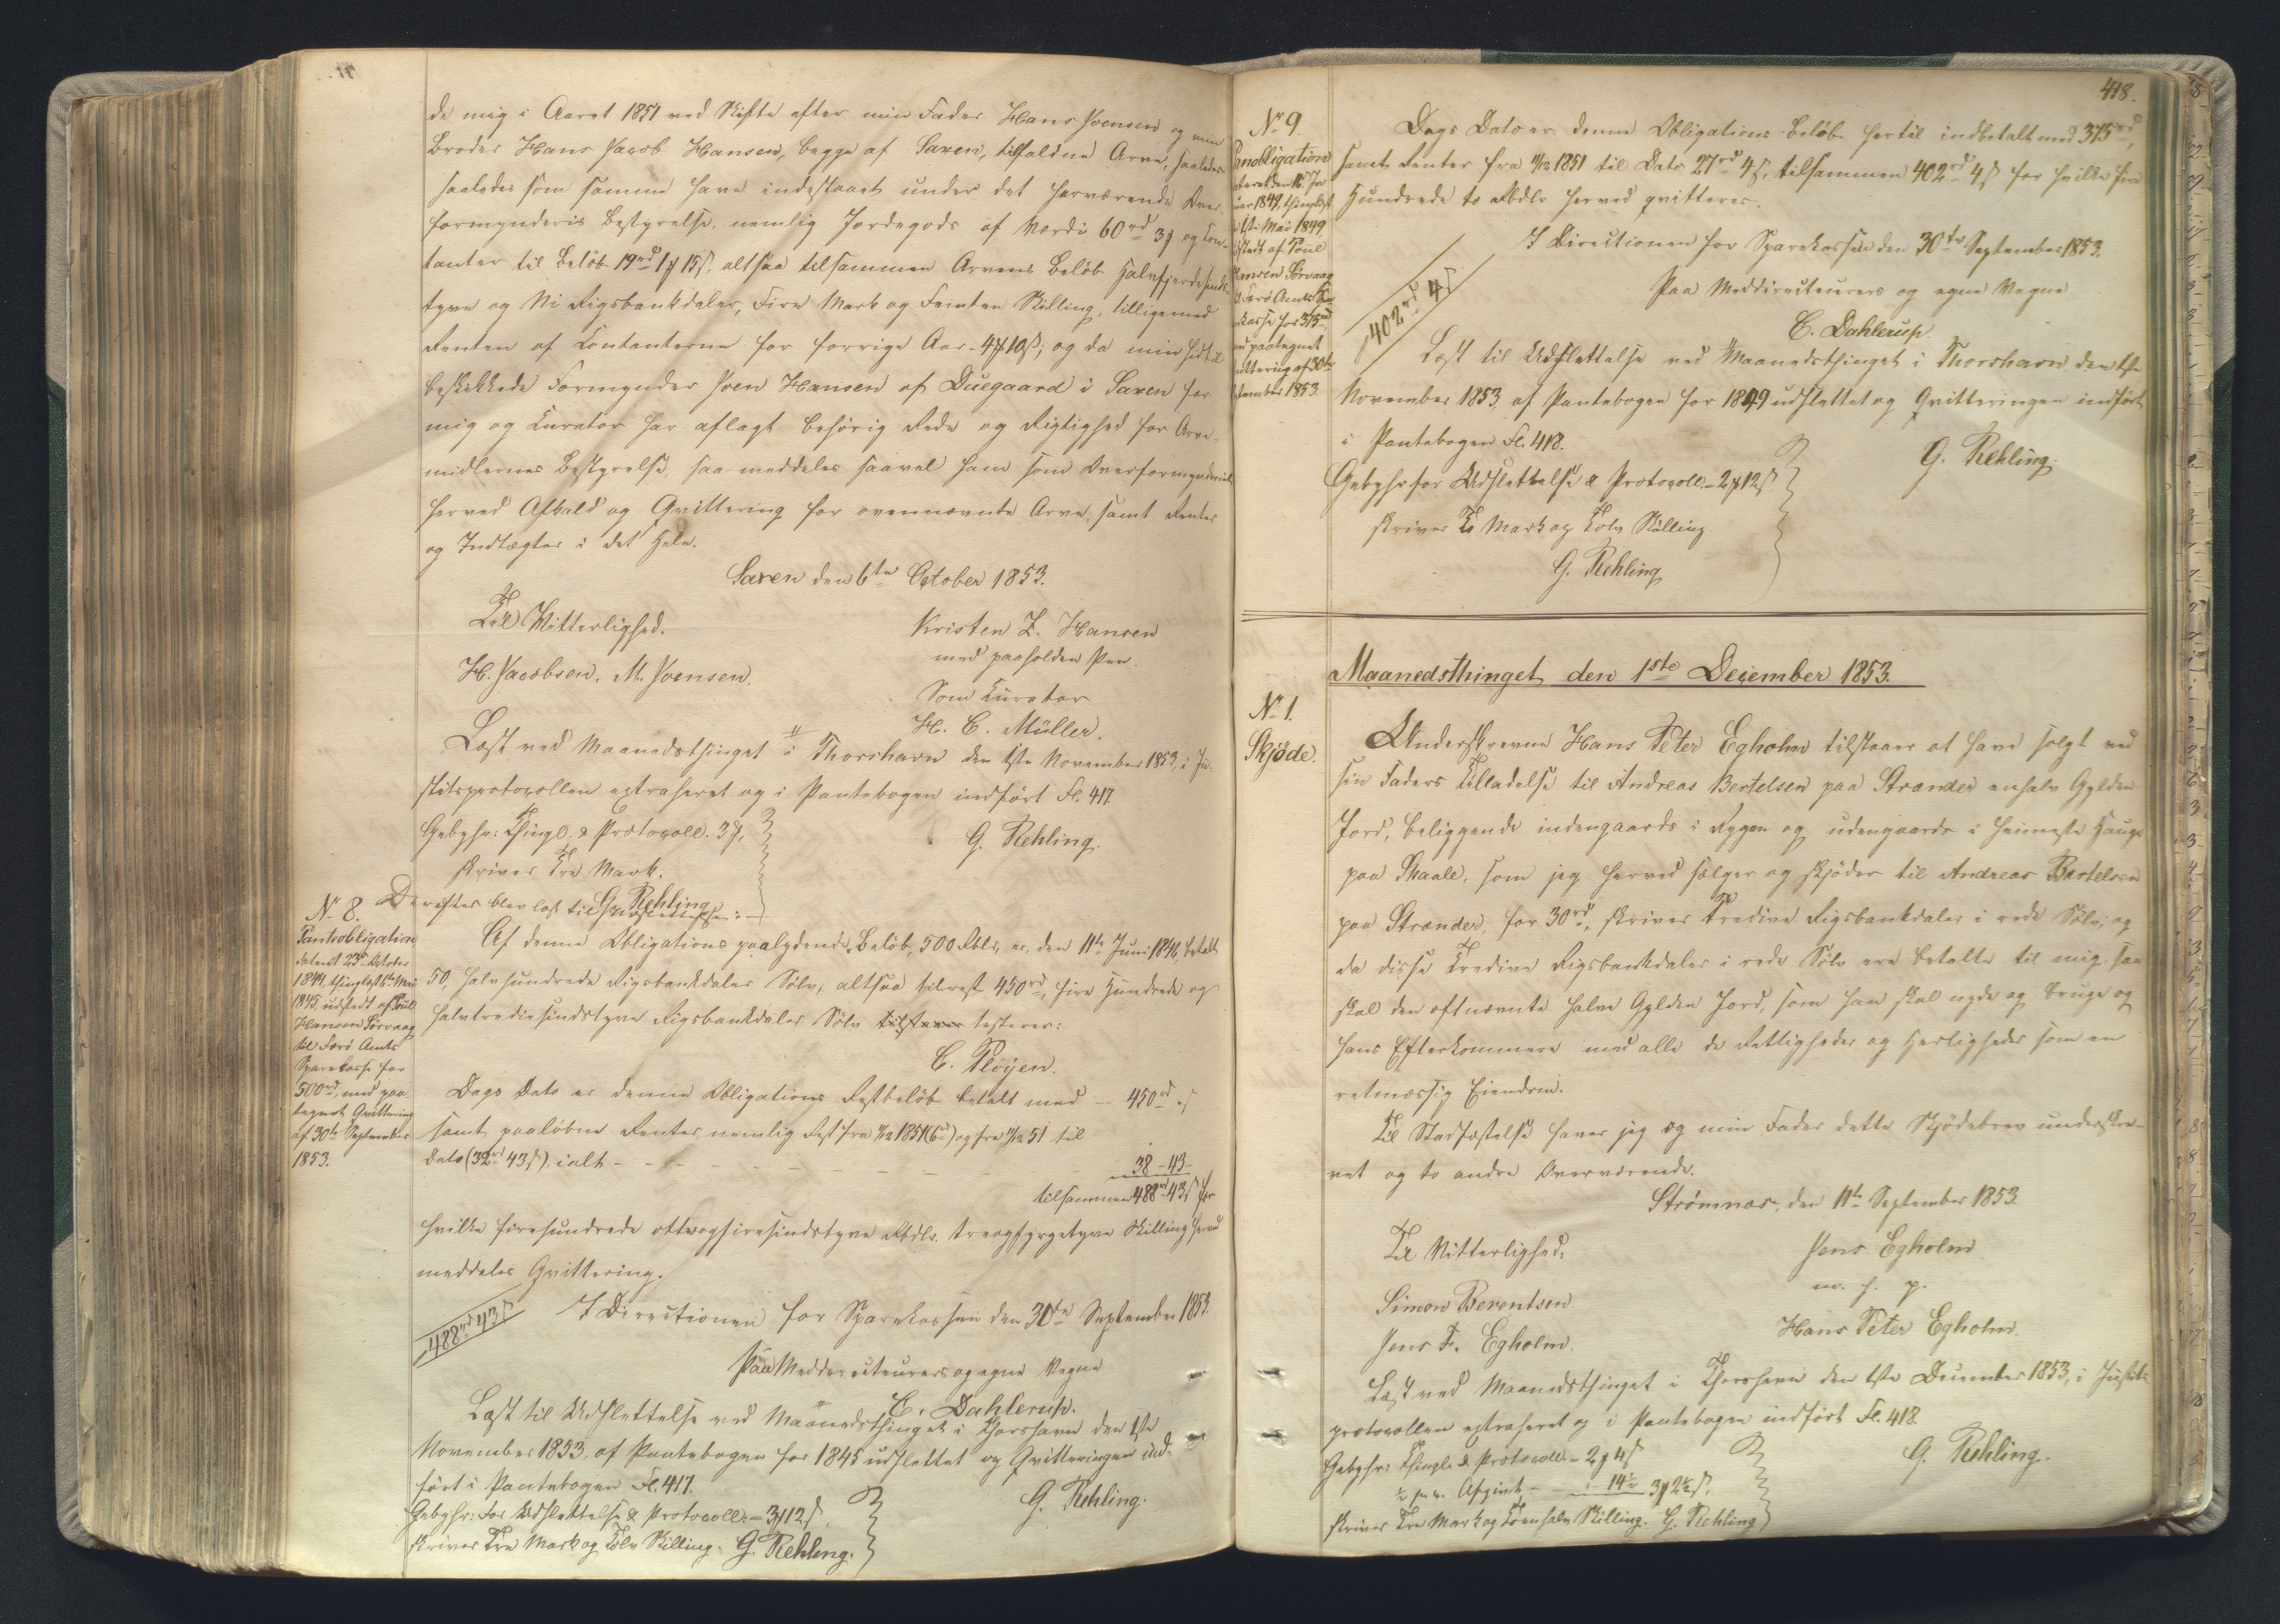 de mig i Aaret 1851 ved Skifte efter min Fader Hans Joensen og min
Broder Hans Jacob Hansen, begge af Saxen, tilfaldne Arve, saaledes
saaledes som samme have indestaaet under det herværende Over-
formynderis Bestyrelse, nemlig Jordegods af Værdi 60rd 3 # og Con-
tanter til Beløb 19rd 1 # 15 ß, altsaa tilsammen Arvens Beløb Halvfjerdesinds-
tyve og Ni Rigsbankdaler, Fire Mark og Femten Skilling, tilligemed
Renten af Contanterne for forrige Aar - 4 # 10 ß; og da min hidtil
beskikkede Formynder Joen Hansen af Duegaard i Saxen for
mig og Curator har aflagt behørig Rede og Rigtighed for Arve-
midlernes Bestyrelse, saa meddeles saavel ham som Overformynderiet
herved Afkald og Qvittering for ovennævnte Arve, samt Renter
og Indtægter i det Hele.
Saxen den 6te October 1853.
Til Vitterlighed.
Kristen Z. Hansen
med paaholden Pen.
H. Jacobsen. M. Joensen.
Som Curator
H. C. Müller.
Læst ved Maanedsthinget i Thorshavn den 1ste November 1853, i Ju-
stitsprotocollen extraheret og i Pantebogen indført Fl. 417.
Gebyhr: Thingl. & Protocoll. 3 #,
skriver Tre Mark.
G. Rehling.
G. Rehling
Derefter blev læst til Udslettelse:
No 8.
Pantobligation
dateret 23de October
1844, thinglæst 5te Mai
1845 udstedt af Poul
Hansen Sørvaag
til Færø Amts
Sparekasse for
500rd, med paa-
tegnet Qvittering
af 30te September
1853.
Af denne Obligations paalydende Beløb, 500 Rbdlr, er, den 11te Juni 1846, betalt
50, halvhundrede Rigsbankdaler Sølv, altsaa tilrest 450rd, fire Hundrede og
halvtrediesindstyve Rigsbankdaler Sølv tilstaaer testerer:
C. Pløyen.
Dags Dato er denne Obligations Restbeløb betalt med - 450rd " ß
samt paaløbne Renter nemlig Rest fra 11/12 1851 (6rd) og fra 11/12 51 til
dato (32rd 43 ß), ialt - - - - - 38 - 43 -
tilsammen 488rd 43 ß for
hvilke firehundrede otteogfiresindstyve Rbdlr. treogfyrgetyve Skilling herved
meddeles Qvittering.
488rd 43 ß
I Directionen for Sparekassen den 30te September 1853.
Paa Meddirecteurers og egne Vegne
C. Dahlerup.
Læst til Udslettelse ved Maanedsthinget i Thorshavn den 1ste
November 1853, af Pantebogen for 1845 udslettet og Qvitteringen ind-
ført i Pantebogen Fl. 417.
G. Rehling.
Gebyhr: for Udslettelse & Protocoll. - 3 # 12 ß,
skriver Tre Mark og Tolv Skilling. G. Rehling.
418.
No 9.
Pantobligation
1849, thinglæst
1ste Mai 1849
udstedt af Poul
Hansen Sørvaag
til Færø Amts Spa-
rekasse for 375rd
med paategnet
Qvittering af 30te
September 1853.
Dags Dato er denne Obligations Beløb hertil indbetalt med 375rd,
samt Renter fra 11/12 1851 til Dato 27rd 4 ß, tilsammen 402rd 4 ß for hvilke fire
Hundrede to Rbdlr herved qvitteres.
I Directionen for Sparekassen den 30te September 1853.
Paa Meddirecteurers og egne Vegne
402rd 4 ß
C. Dahlerup.
Læst til Udslettelse ved Maanedsthinget i Thorshavn den 1ste
November 1853, af Pantebogen for 1849 udslettet og Qvitteringen indført
i Pantebogen Fl. 418.
G. Rehling.
Gebyhr for Udslettelse & Protocoll. - 2 # 12 ß
skriver To Mark og Tolv Skilling.
G. Rehling
Maanedsthinget den 1ste December 1853.
No 1.
Skjøde.
Underskrevne Hans Peter Egholm tilstaaer at have solgt ved
sin Faders Tilladelse til Andreas Bertelsen paa Strænder en halv Gylden
Jord, beliggende indengaards i Rygen og udengaards i heimeste Hauge
paa Skaale, som jeg herved sælger og skjøder til Andreas Bertelsen
paa Strænder, for 30rd, skriver Tredive Rigsbankdaler i rede Sølv; og
da disse Tredive Rigsbankdaler i rede Sølv ere betalte til mig, saa
skal den oftnævnte halve Gylden Jord, som han skal nyde og bruge og
hans Efterkommere med alle de Rettigheder og Herligheder som en
retmæssig Eiendom.
Til Stadfæstelse haver jeg og min Fader dette Skjødebrev underskre-
vet og to andre Overværende.
Strømnæs, den 11te September 1853.
Til Vitterlighed:
Jens Egholm
m. f. p.
Simon Berentsen
Hans Peter Egholm.
Jens F. Egholm.
Læst ved Maanedsthinget i Thorshavn den 1ste December 1853, i Justits-
protocollen extraheret og i Pantebogen indført Fl. 418.
G. Rehling.
Gebyhr: Thingl. & Protocoll. - 2 # 4 ß
½ pr. c. Afgivt - - 14½ 3 # 2½ ß,
skriver Tre Mark og Toenhalv Skilling. G. Rehling